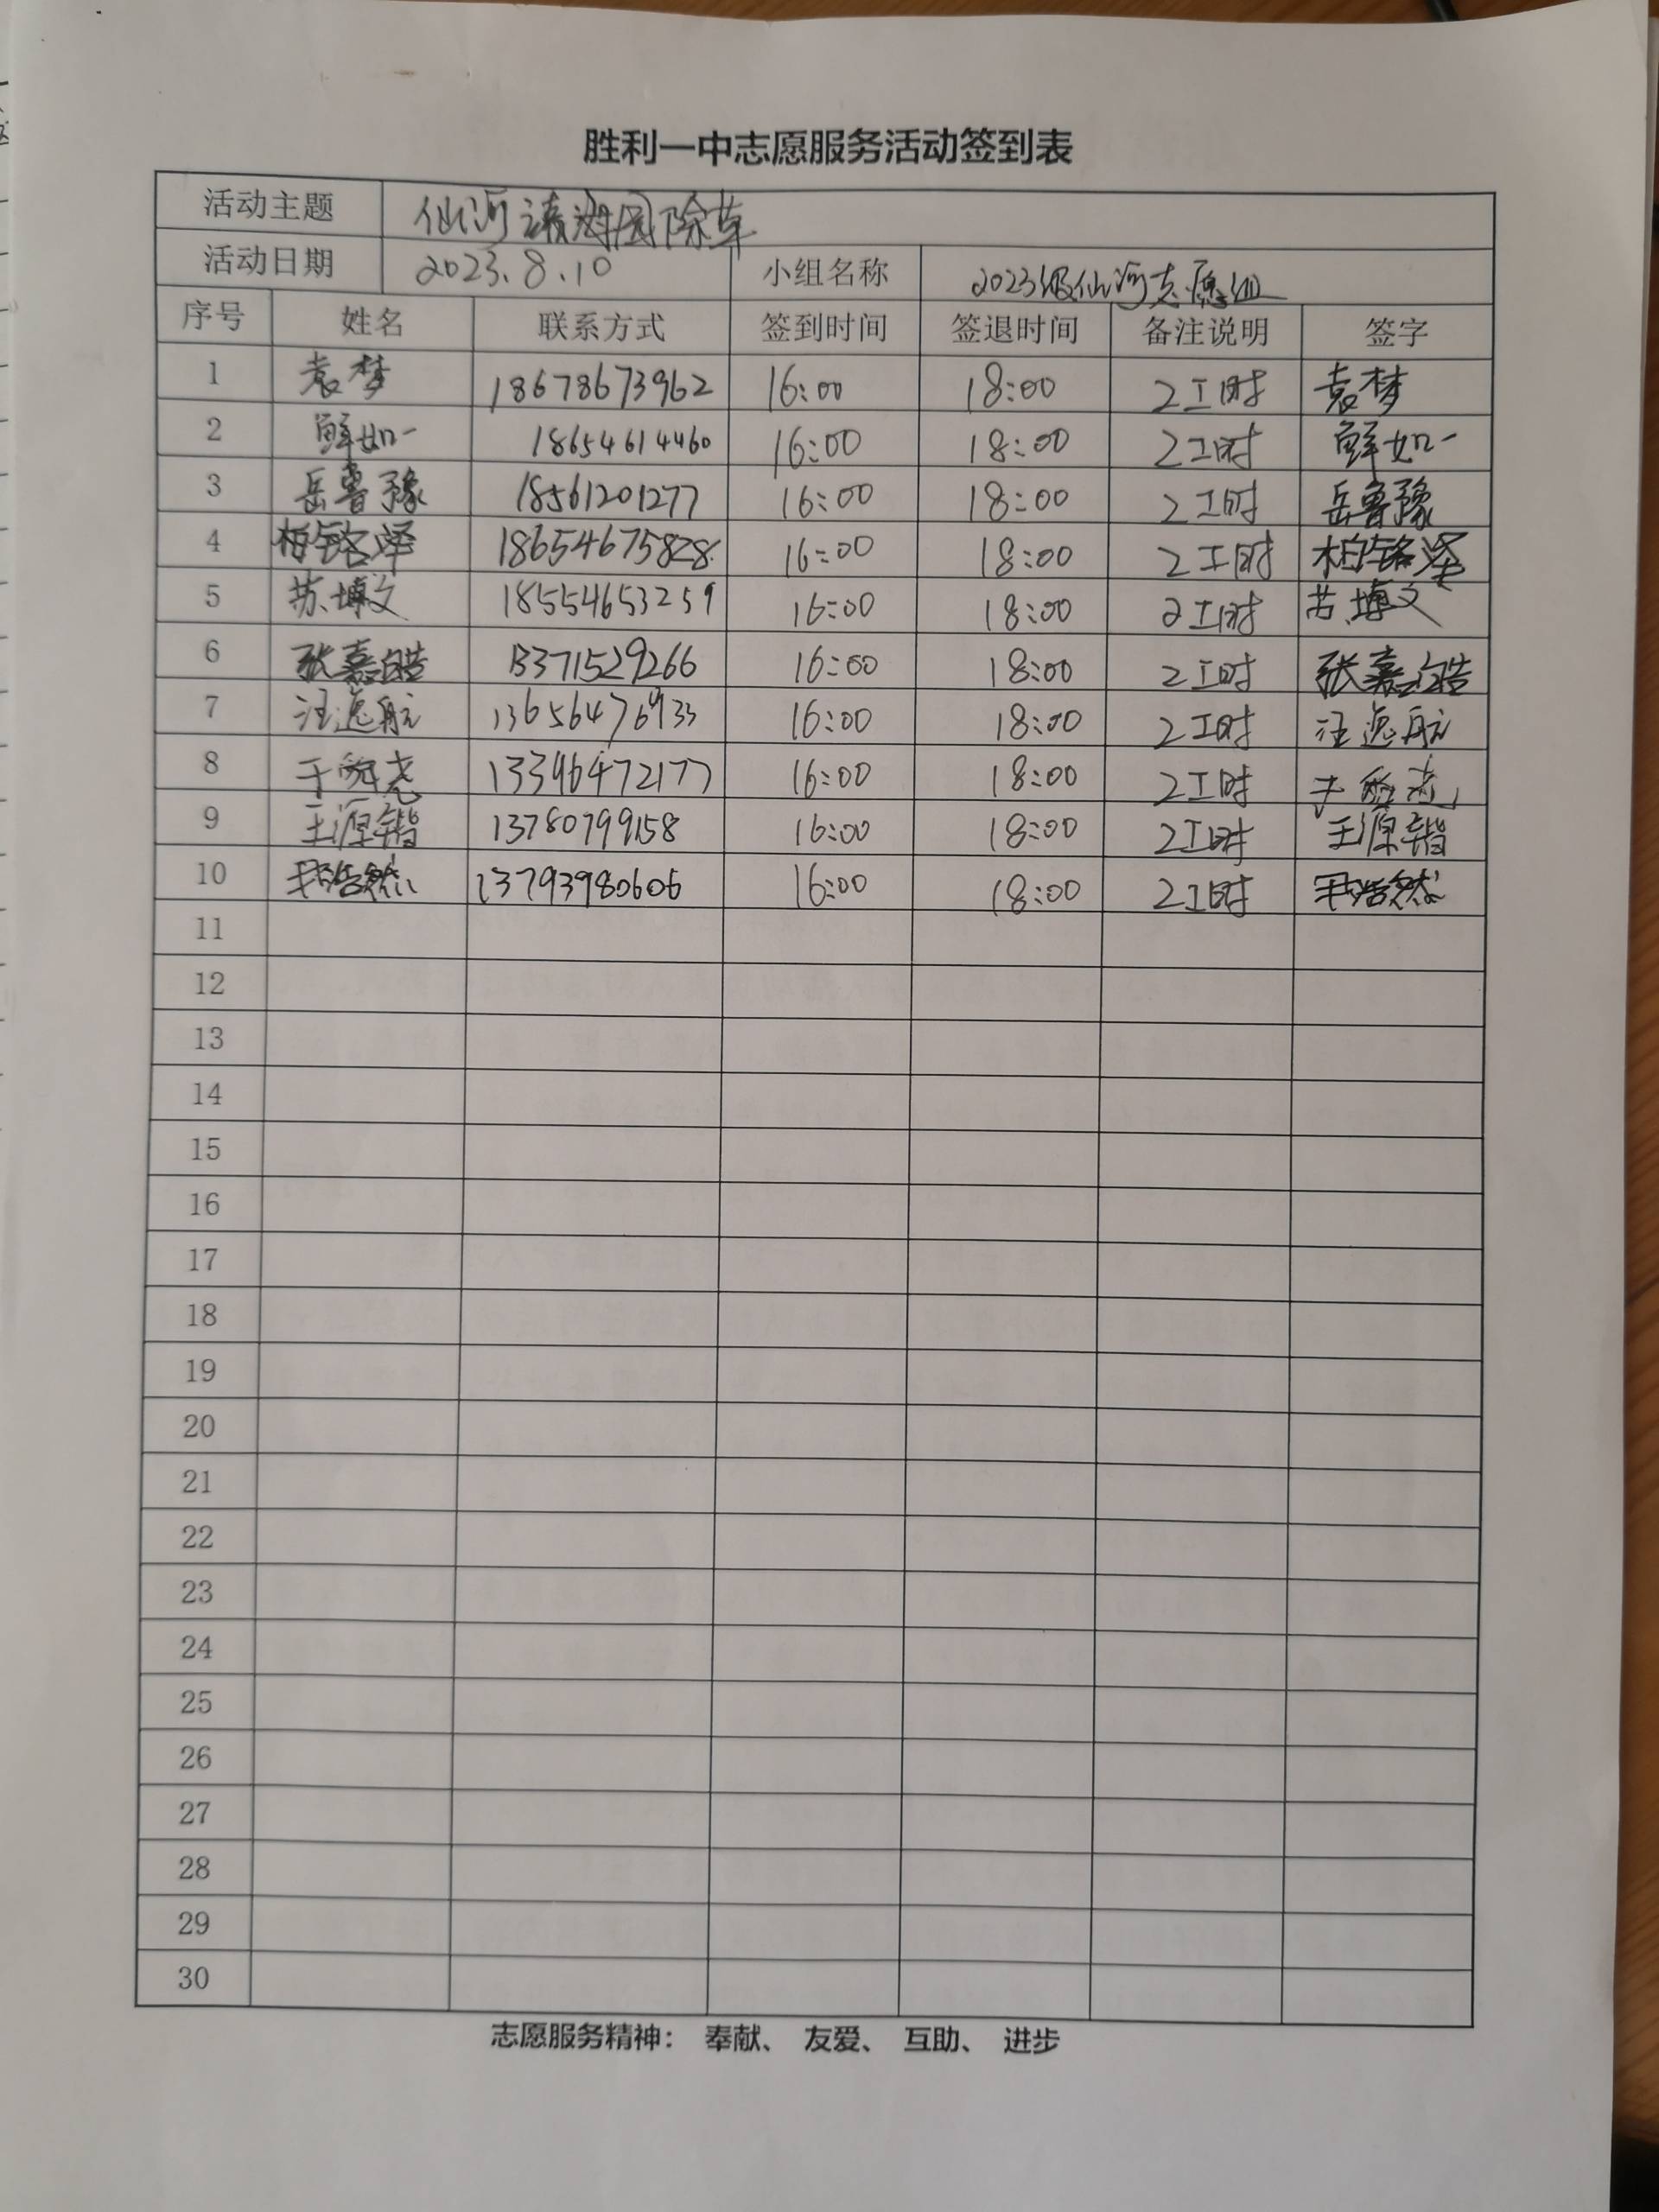 胜利一中志愿服务活动签到表
活动主题 仙河靖海园除草
活动日期 2023.8.10 小组名称 2023级仙河志愿组
序号 姓名 联系方式 签到时间 签退时间 备注说明 签字
1 袁梦 18678673962 16:00 18:00 2工时 袁梦
2 鲜如一 18654614460 16:00 18:00 2工时 鲜如一
3 岳鲁豫 18561201277 16:00 18:00 2工时 岳鲁豫
4 柏铭泽 18654675828 16:00 18:00 2工时 柏铭泽
5 苏博文 18554653259 16:00 18:00 2工时 苏博文
6 张嘉皓 13371529266 16:00 18:00 2工时 张嘉皓
7 汪逸航 13656476933 16:00 18:00 2工时 汪逸航
8 于舜尧 13346472177 16:00 18:00 2工时 于舜尧
9 王源锴 13780799158 16:00 18:00 2工时 王源锴
10 浩然 13793980606 16:00 18:00 2工时 浩然
11
12
13
14
15
16
17
18
19
20
21
22
23
24
25
26
27
28
29
30
志愿服务精神： 奉献、 友爱、 互助、 进步